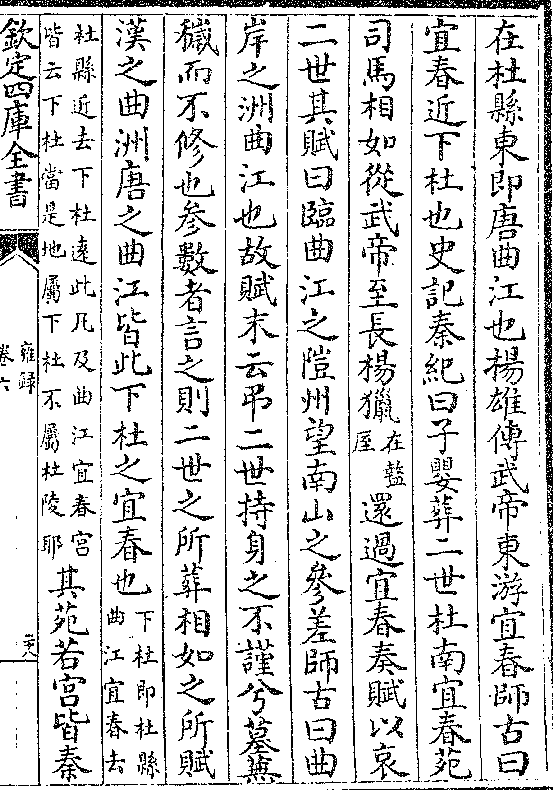 在杜縣東即唐曲江也揚雄傳武帝東游宜春師古曰
宜春近下杜也史記秦紀曰子嬰葬二世杜南宜春苑
司馬相如從武帝至長楊獵在盩厔還過宜春奏賦以哀
二世其賦曰臨曲江之隑州望南山之參差師古曰曲
岸之洲曲江也故賦末云弔二世持身之不謹兮墓蕪
穢而不修也參數者言之則二世之所葬相如之所賦
漢之曲洲唐之曲江皆此下杜之宜春也下杜即杜縣曲江宜春去
杜縣近去下杜逺此凡及曲江宜春宮皆云下杜當是地屬下杜不屬杜陵耶其苑若宮皆秦
欽定四庫全書
雍録
卷六